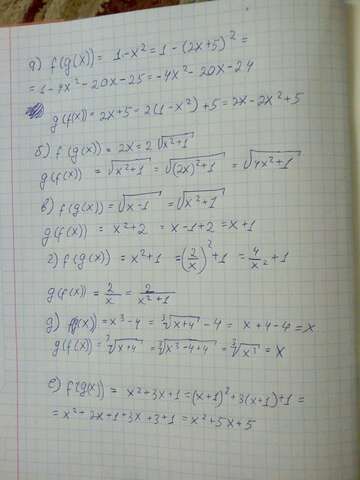 а) f(g(x)) = 1-x² = 1-(2x+5)² =
= 1-4x²-20x-25 = -4x²-20x-24
g(f(x)) = 2x+5 = 2(1-x²)+5 = 2x-2x²+5
б) f(g(x)) = 2x = 2√(x²+1)
g(f(x)) = √(x²+1) = √((2x)²+1) = √(4x²+1)
в) f(g(x)) = √(x-1) = √(x²+1)
g(f(x)) = x²+2 = x-1+2 = x+1
г) f(g(x)) = x²+1 = (2/x)²+1 = 4/x²+1
g(f(x)) = 2/x = 2/(x²+1)
д) f(g(x)) = x³-4 = ∛(x+4) -4 = x+4-4 = x
g(f(x)) = ∛(x+4) = ∛(x³-4+4) = ∛(x³) = x
е) f(g(x)) = x²+3x+1 = (x+1)²+3(x+1)+1 =
= x²+2x+1+3x+3+1 = x²+5x+5